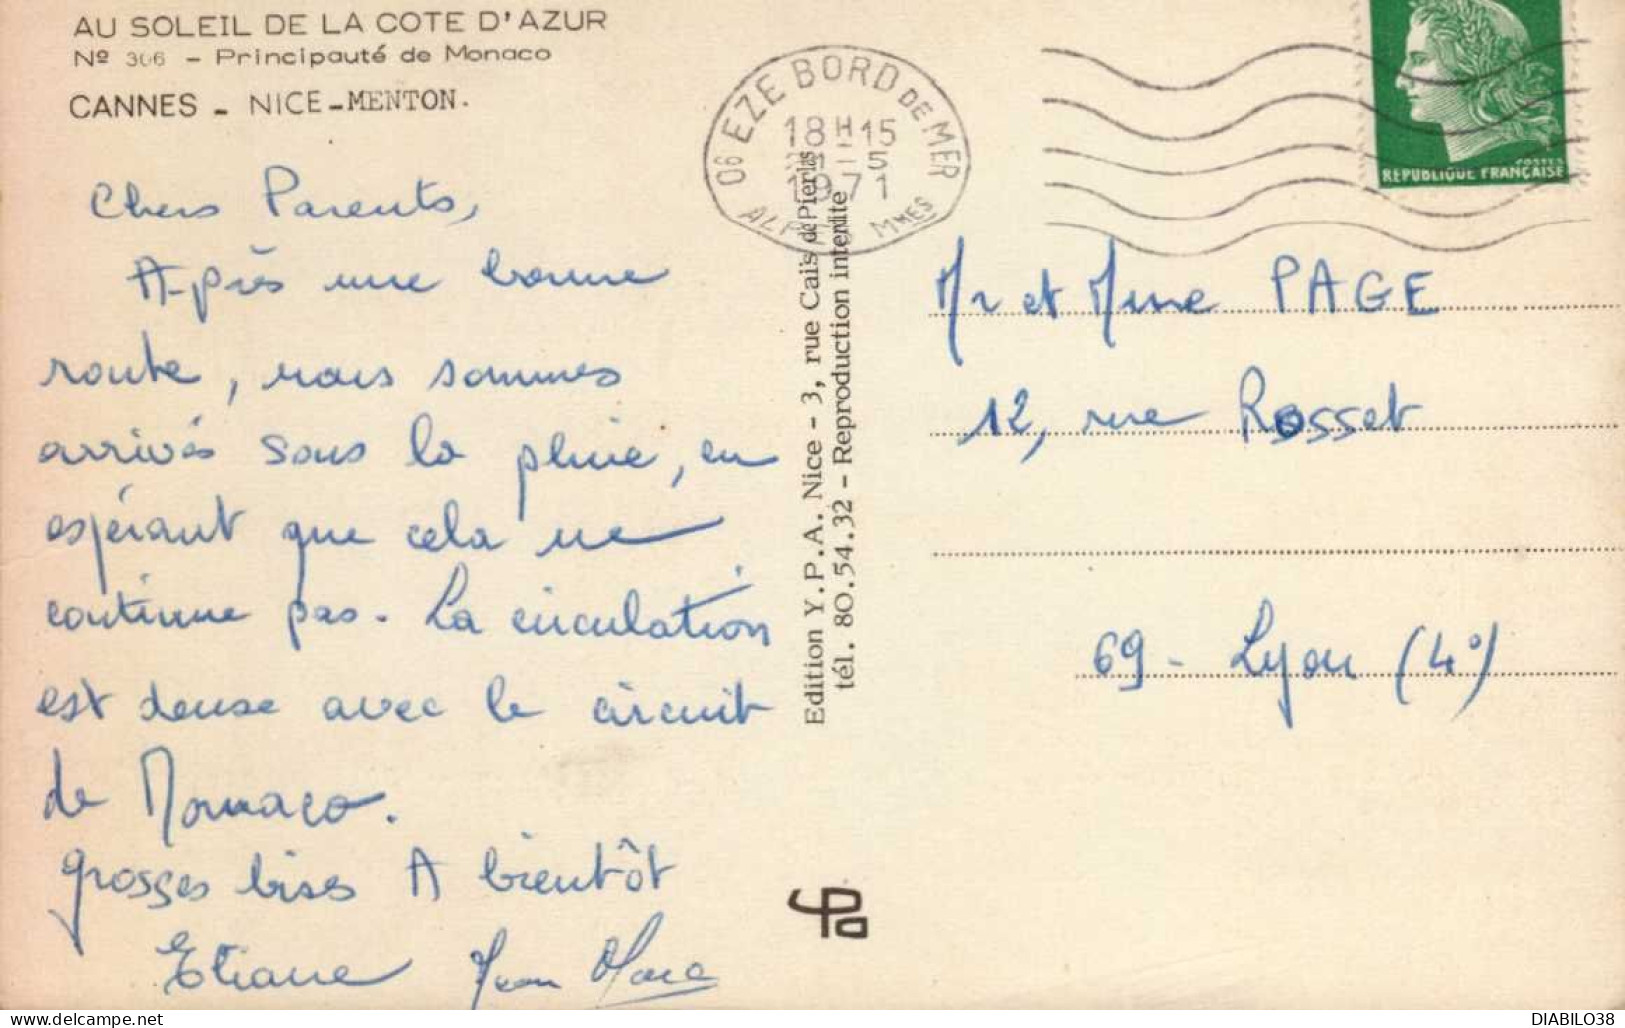 AU SOLEIL DE LA COTE D'AZUR
Nº 306 - Principauté de Monaco
CANNES - NICE-MENTON.
Chers Parents,
Après une bonne
route, nous sommes
arrivés sous la pluie, en
espérant que cela ne
continue pas. La circulation
est dense avec le circuit
de Monaco.
grosses bises A bientôt
Etiane Jean Marc
06 EZE BORD DE MER
18H15
-5
1971
ALPES Mmes
POSTES
REPUBLIQUE FRANÇAISE
Edition Y.P.A. Nice - 3, rue Caïs de Pierlas
tél. 80.54.32 - Reproduction interdite
Mr et Mme PAGE
12, rue Rosset
69 - Lyon (4º)
DIABILO38
https://www.delcampe.net